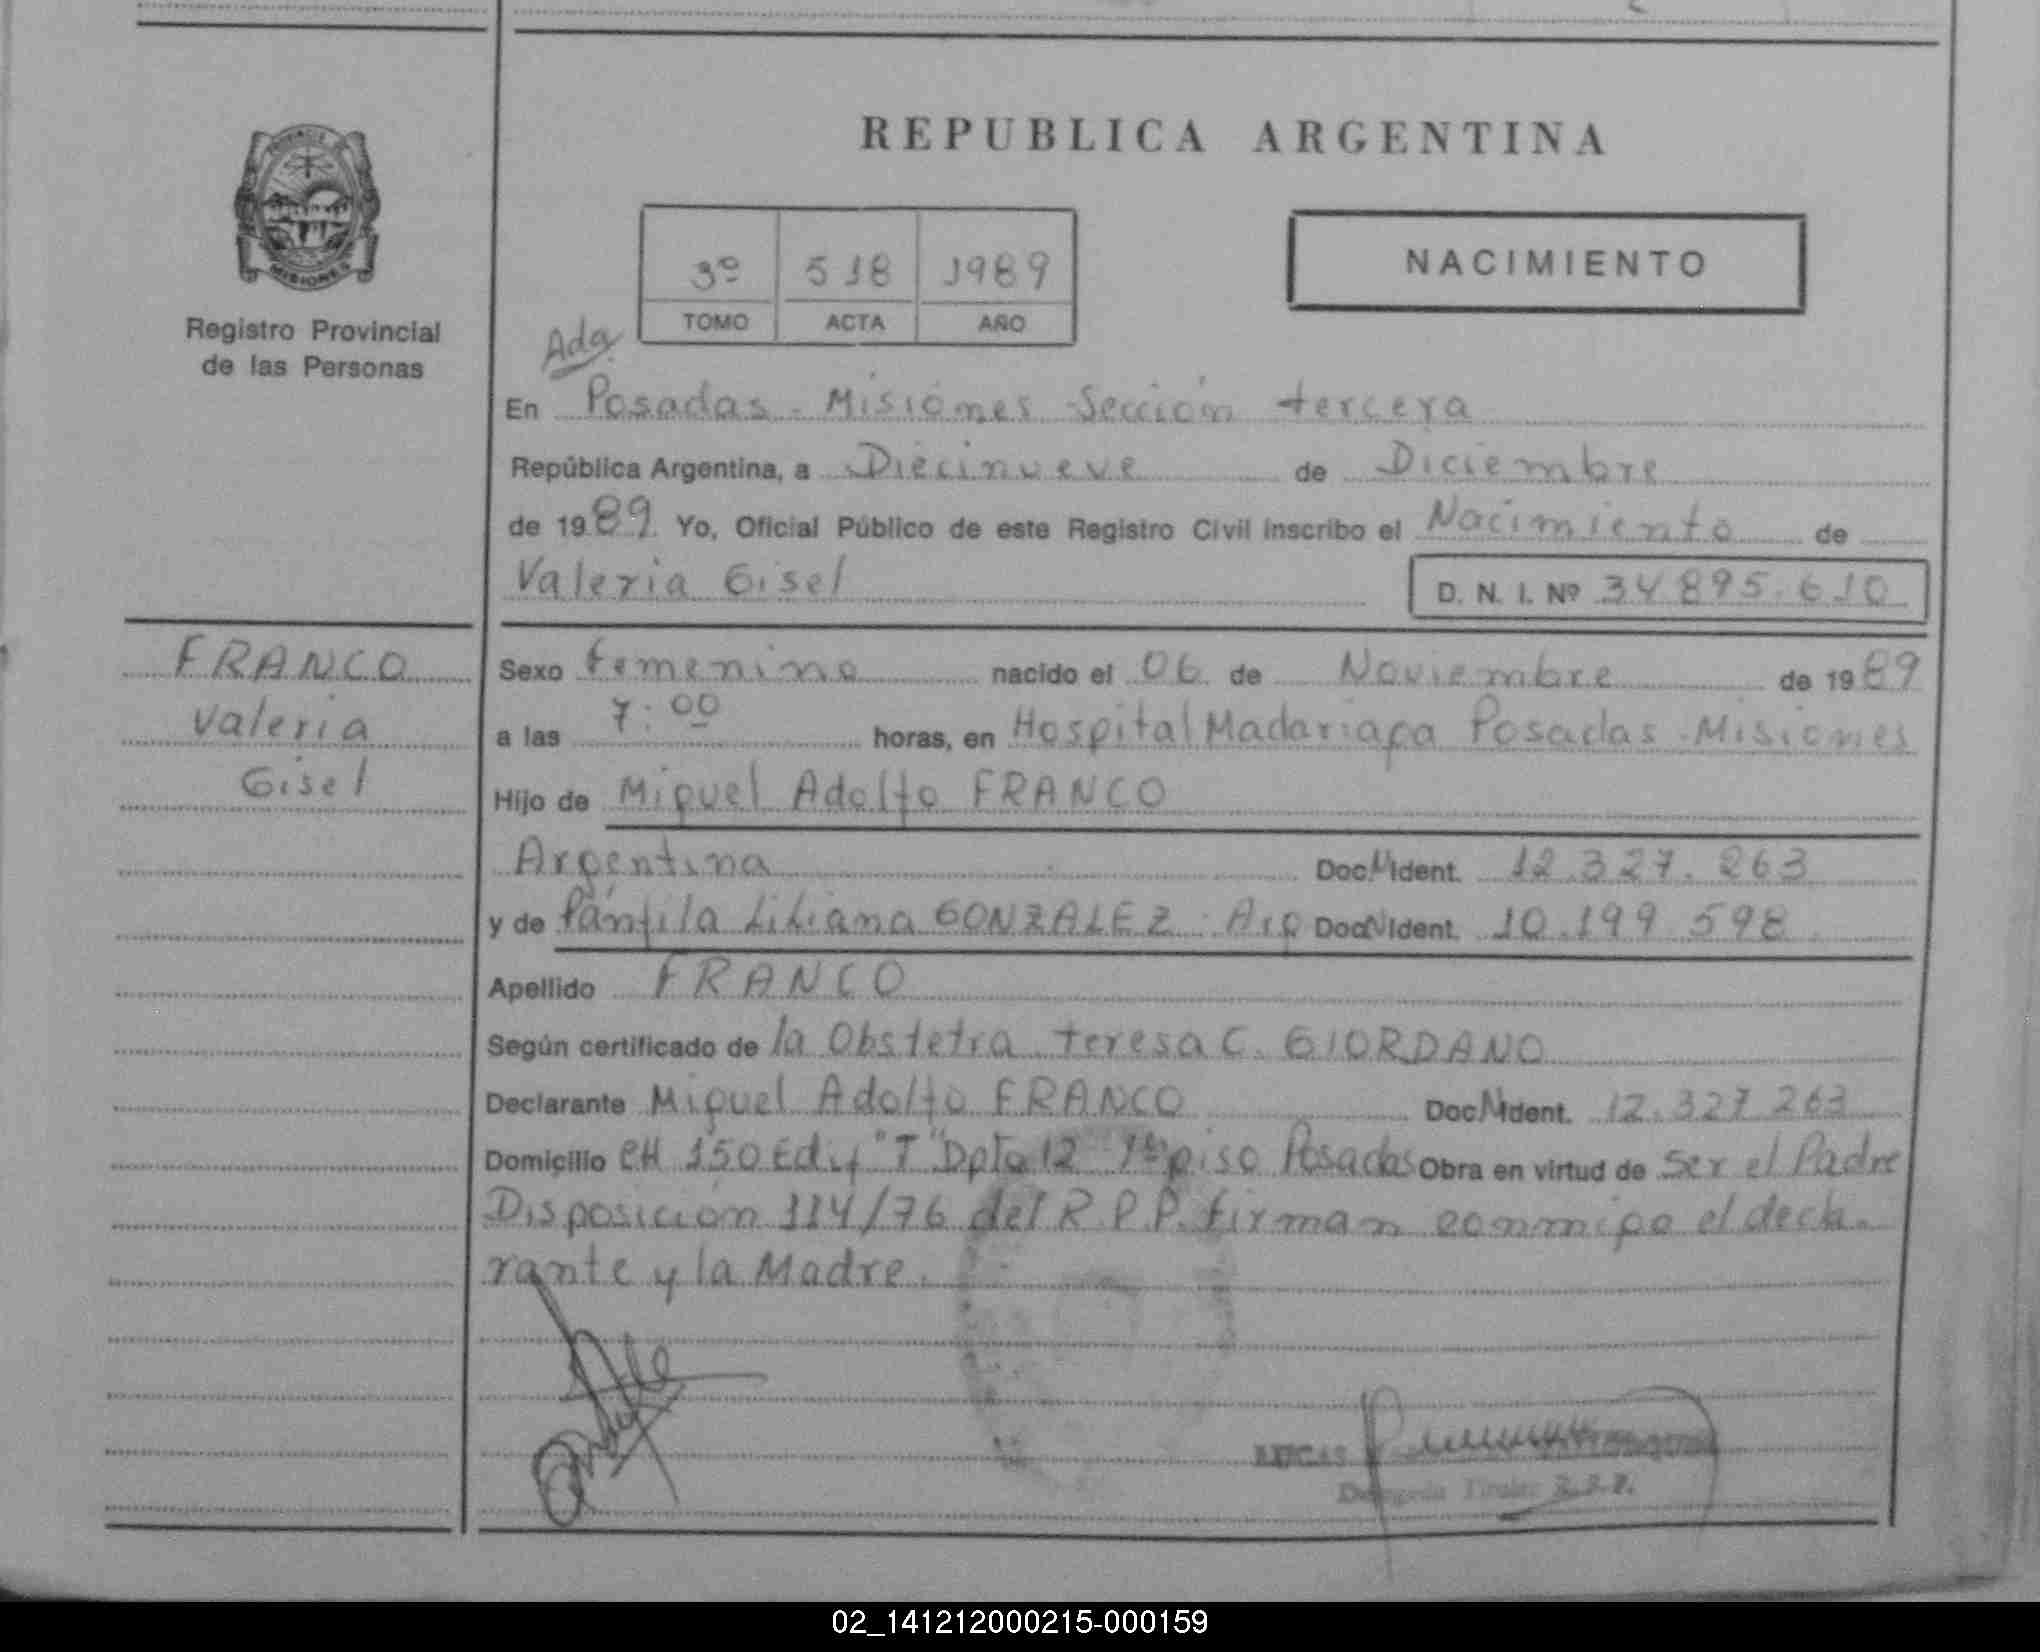 REPUBLICA ARGENTINA
PROVINCIA DE
MISIONES
Registro Provincial
de las Personas
3º 518 1989
TOMO ACTA AÑO
NACIMIENTO
Ada
En Posadas - Misiones Sección tercera
República Argentina, a Diecinueve de Diciembre
de 1989. Yo, Oficial Público de este Registro Civil inscribo el Nacimiento de
Valeria Gisel D. N. I. Nº 34895.610
FRANCO
Valeria
Gisel
Sexo femenino nacido el 06 de Noviembre de 1989
a las 7:00 horas, en Hospital Madariaga Posadas - Misiones
Hijo de Miguel Adolfo FRANCO
Argentina Doc. N Ident. 12.327.263
y de Pánfila Liliana GONZALEZ Arg Doc. N Ident. 10.199.598
Apellido FRANCO
Según certificado de la Obstetra teresa C. GIORDANO
Declarante Miguel Adolfo FRANCO Doc. N Ident. 12.327.263
Domicilio CH 150 Edif "T" Dpto 12 1er piso Posadas Obra en virtud de Ser el Padre
Disposición 114/76 del R.P.P. firman conmigo el decla-
rante y la Madre.
Titular R.P.P.
02_141212000215-000159